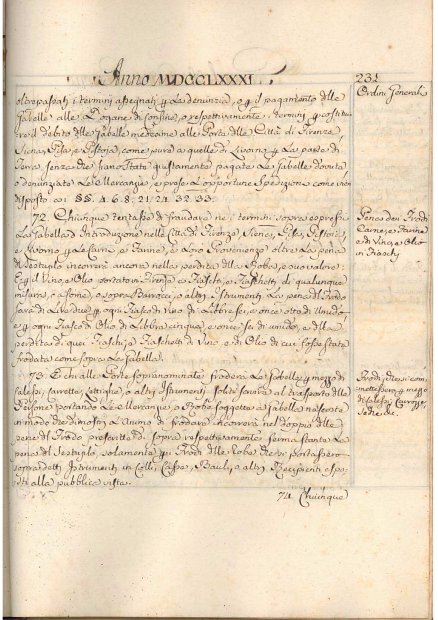 Anno MDCCLXXXI.
231
Ordini Generali
oltrepassati i termini assegnati p la denunzia, o p il pagamento delle
Gabelle alle Dogane di Confine, o respettivamente i termini p costitui-
re il debito delle Gabelle medesime alle Porte delle Città di Firenze,
Siena, Pisa, e Pistoja, come pure a quelle di Livorno p le passo di
Terra, senza che siano state giustamente pagate le Gabelle dovute,
o denunziate le Mercanzie, e prese le opportune spedizioni come vien
disposto coi §§. 4. 6. 8. 21. 24. 32. 33.
72. Chiunque tenta di fraudare ne i termini sopra espressi
la Gabella d'Introduzione nelle Città di Firenze, Siena, Pisa, Pistoja,
e Livorno p le Carni e Farine, e loro Provenienze oltre la pena
del sestuplo incorrerà ancora nella perdita della Roba, o suo valore:
E p il Vino e Olio portato in Firenze in Fiaschi, e Fiaschetti di qualunque
misura, a Some, o sopra Barocci, o altri Istrumenti la pena del Frodo
sarà di Lire due p ogni Fiasco di Vino di Libbre sei, e once otto di Umido
e p ogni Fiasco di Olio di Libbre cinque, e once sei di umido, e della
perdita di quei Fiaschi, e Fiaschetti di Vino, e di Olio di cui fosse stata
frodata come sopra la Gabella.
Pena dei Frodi
Carne, e Farine
e di Vino, e Olio
in Fiaschi
73. E chi alle Porte sopranominate froderà la Gabella p mezzo di
Calessi, Carrette, Lettighe, o altri Istrumenti soliti servire al trasporto delle
Persone portando le Mercanzie, o Robe soggette a Gabella nascoste
in modo che dimostri l'animo di frodare incorrerà nel doppio delle
pene del Frodo prescritte di sopra respettivamente ferma stante la
pena del sestuplo solamente p i Frodi delle robe che si portassero
sopra detti Istrumenti in Colli, Casse, Bauli, o altri Recipienti espo-
sti alla pubblica vista.
Frodi, che si com-
mettessero p mezzo
di Calessi, Carrozze,
Sedie &c.
74. Chiunque